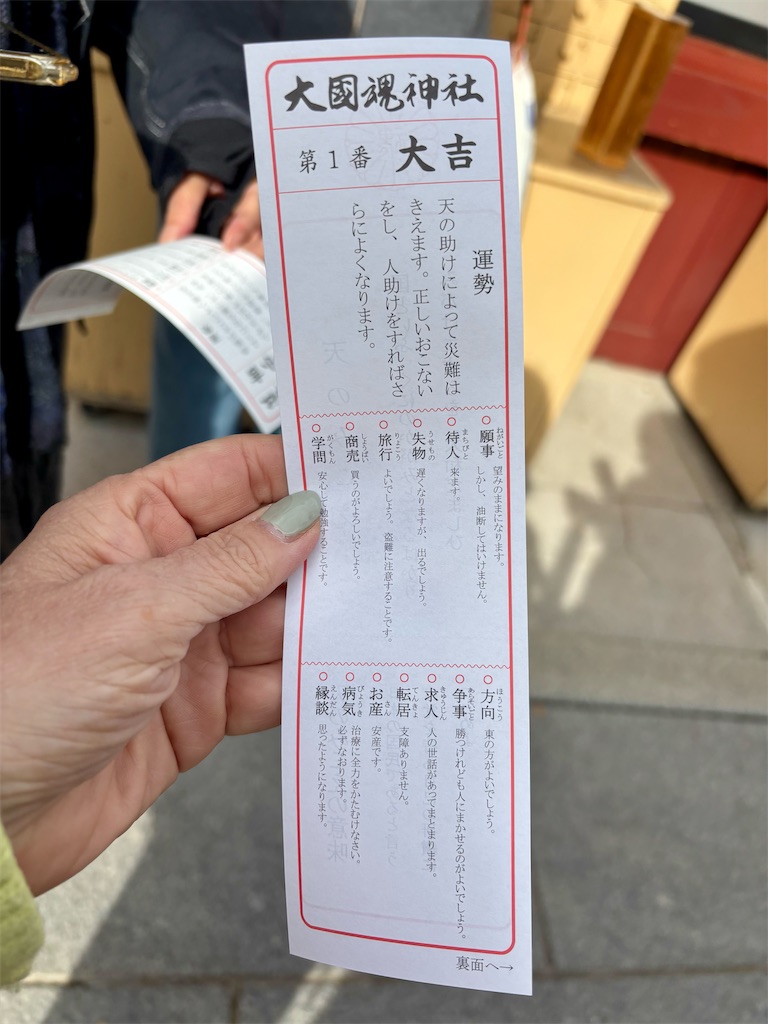 大國魂神社
第1番 大吉
運勢
天の助けによって災難は
きえます。正しいおこない
をし、人助けをすればさ
らによくなります。
願事 ねがいごと 望みのままになります。
しかし、油断してはいけません。
待人 まちびと 来ます。
失物 うせもの 遅くなりますが、出るでしょう。
旅行 りょこう よいでしょう。盗難に注意することです。
商売 しょうばい 買うのがよろしいでしょう。
学問 がくもん 安心して勉強することです。
方向 ほうこう 東の方がよいでしょう。
争事 あらそいごと 勝つけれども人にまかせるのがよいでしょう。
求人 きゅうじん 人の世話があってまとまります。
転居 てんきょ 支障ありません。
お産 さん 安産です。
病気 びょうき 治療に全力をかたむけなさい。
必ずなおります。
縁談 えんだん 思ったようになります。
裏面へ→